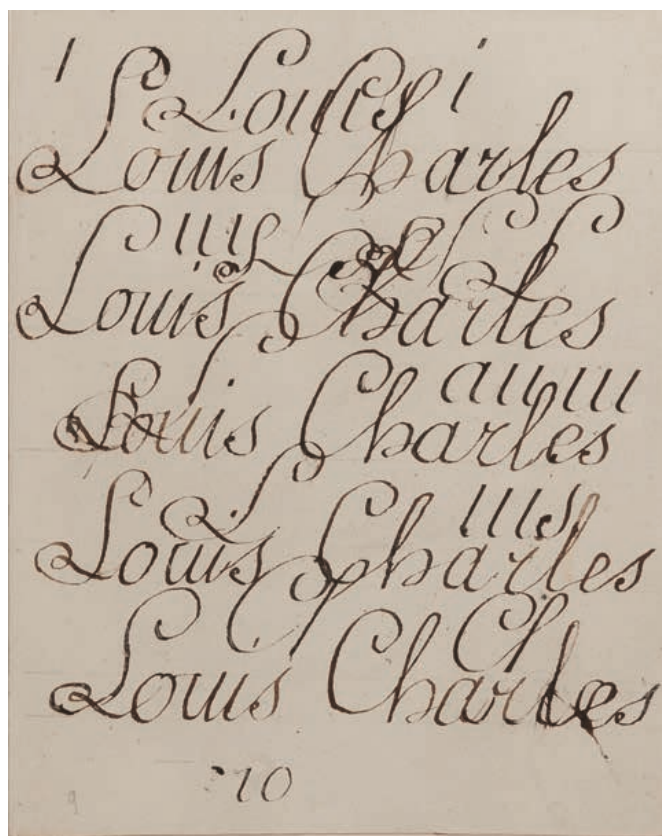 Louis i
Louis Charles
Louis Charles
Louis Charles
Louis Charles
Ch
Louis Charles
10